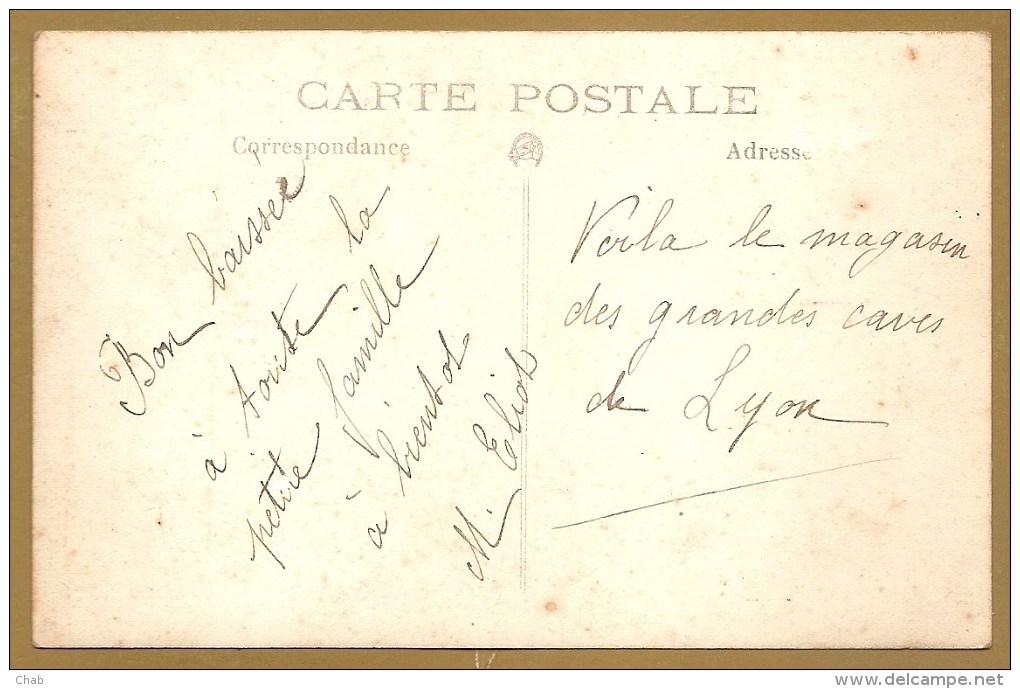 CARTE POSTALE
Correspondance
Adresse
Bon baissée
à toute la
petite famille
à bientot
M. Eliot
Voila le magasin
des grandes caves
de Lyon
Chab
delcampe.net